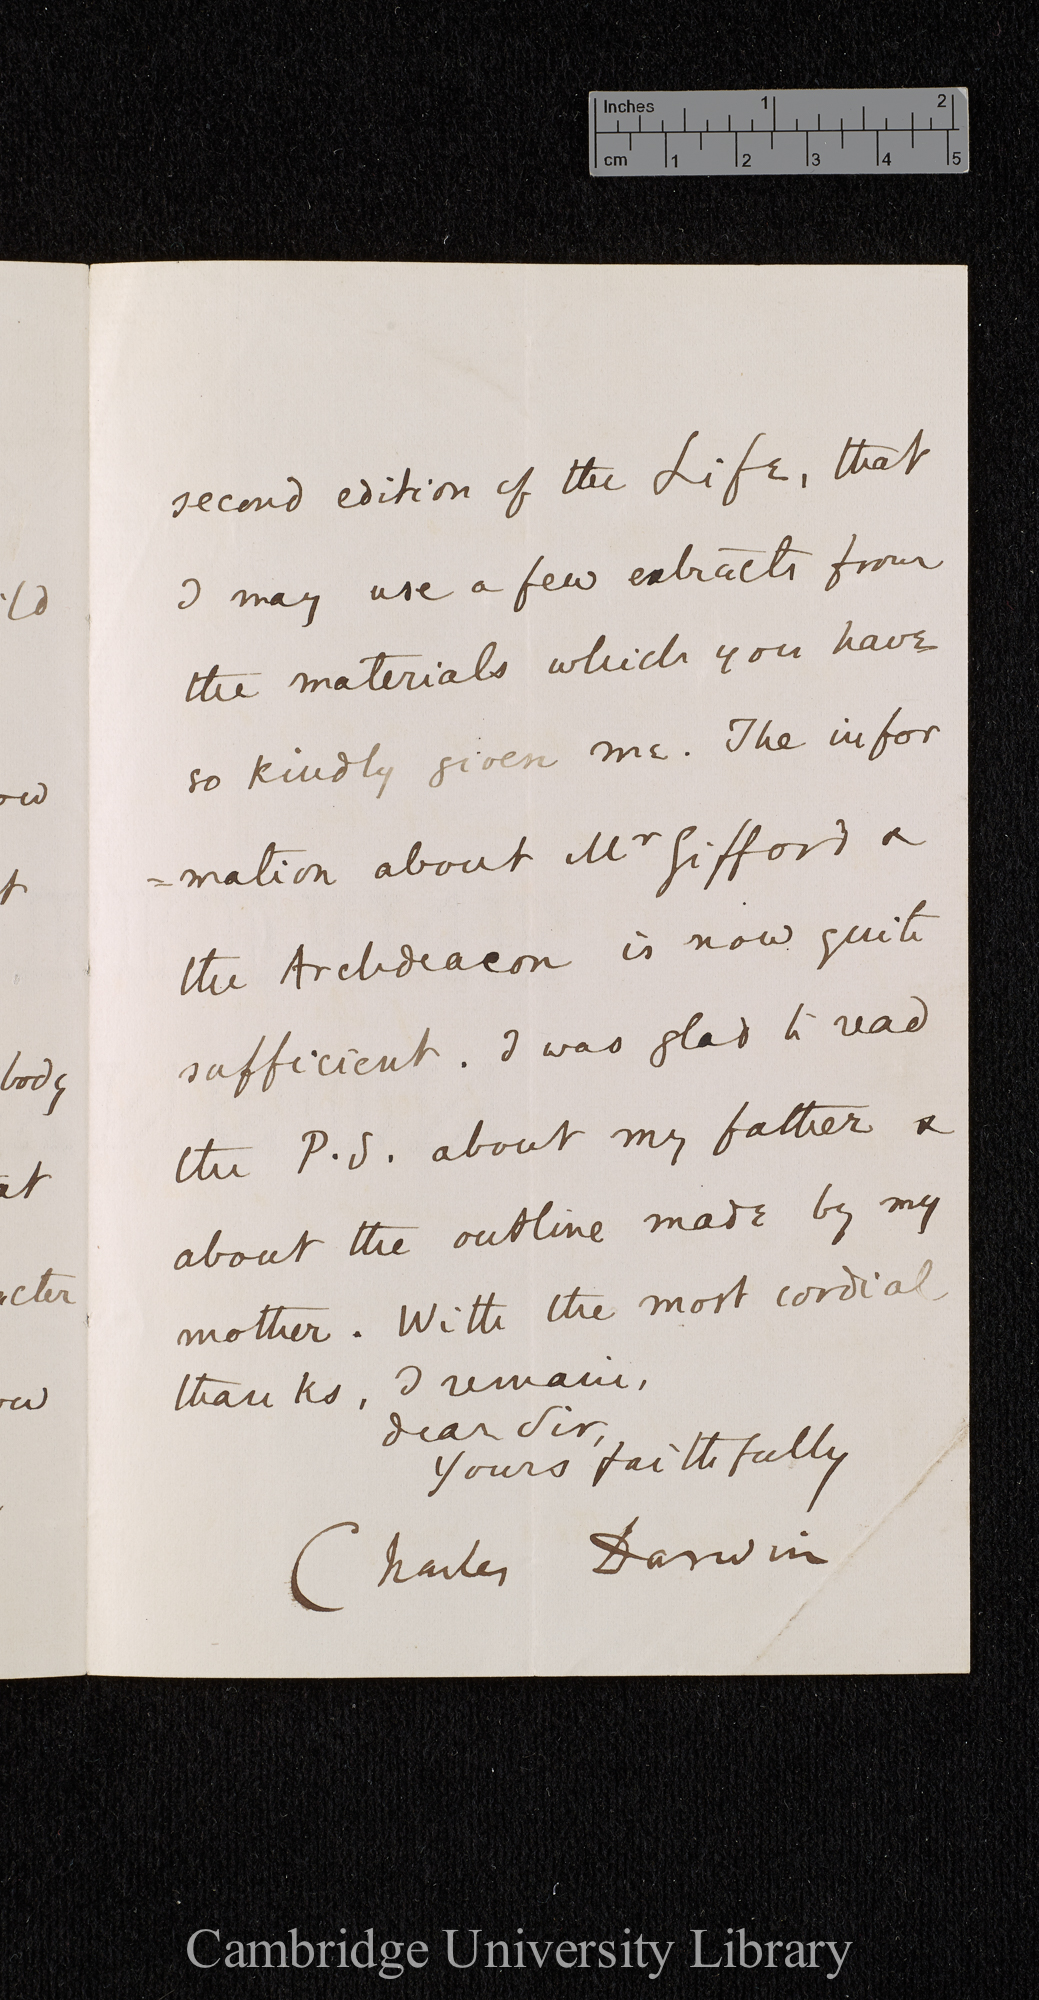 Inches 1 2
cm 1 2 3 4 5
second edition of the Life, that
I may use a few extracts from
the materials which you have
so kindly given me. The infor
=mation about Mr Gifford &
the Archdeacon is now quite
sufficient. I was glad to read
the P.S. about my father &
about the outline made by my
mother. With the most cordial
thanks, I remain,
dear Sir,
Yours faithfully
Charles Darwin
body
at
Cambridge University Library